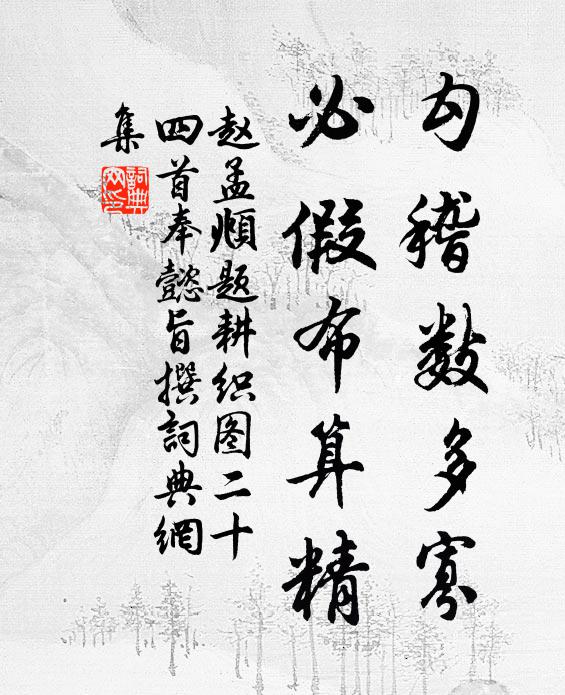 勾稽数多寡
必假布算精
赵孟頫题耕织图二十
四首奉懿旨撰詞典網
集
詞典網印